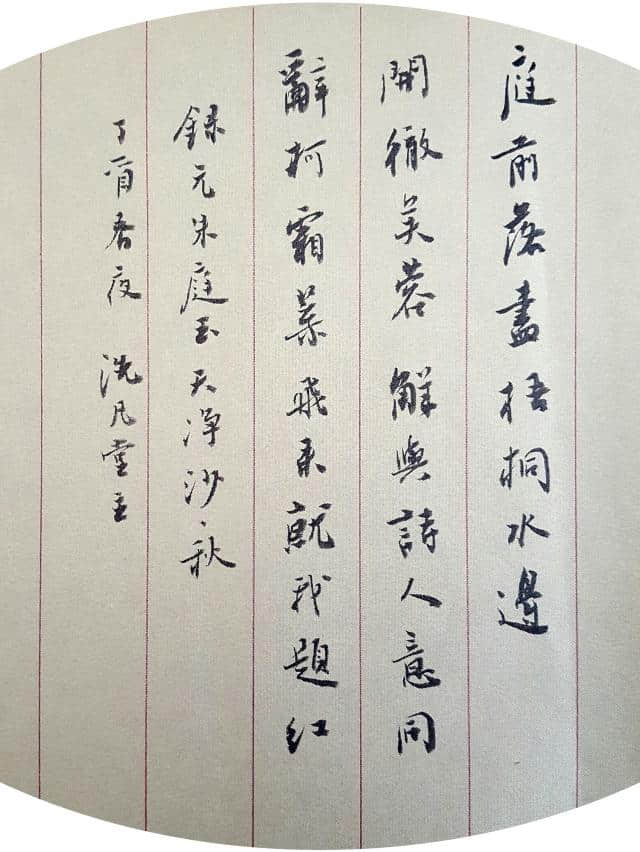 庭前落盡梧桐水邊
開徹芙蓉解與詩人意同
辭柯霜葉飛來就我題红
録元朱庭玉天淨沙、秋
丁酉春夜 洗凡堂主